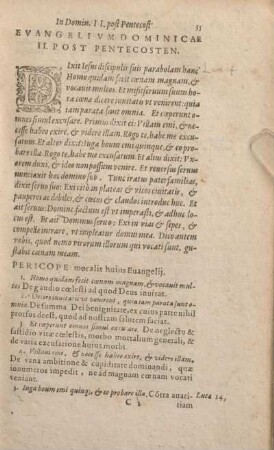 In Domin. II. post Pentecost.
55
EVANGELIVM DOMINICAE
II. POST PENTECOSTEN.
DIxit Iesus discipulis suis parabolam hanc
Homo quidam fecit cœnam magnam, &
vocauit multos. Et misit seruum suum ho
ra cœnæ dicere inuitatis vt venirent: quia
iam parata sunt omnia. Et cœperunt o-
mnes simul excusare. Primus dixit ei: Villam emi, & ne-
cesse habeo exire, & videre illam. Rogo te, habe me excusa-
tum. Et alter dixit: Iuga boum emi quinque, & eo pro-
bare illa. Rogo te, habe me excusatum. Et alius dixit: Vxo-
rem duxi, & ideo non possum venire. Et reuersus seruus
nunciauit hæc domino suo. Tunc iratus paterfamilias,
dixit seruo suo: Exi cito in plateas & vicos ciuitatis, &
pauperes ac debiles, & cæcos & claudos introduc huc. Et
ait seruus: Domine factum est vt imperasti, & adhuc lo-
cus est. Et ait Dominus seruo: Exi in vias & sepes, &
compelle intrare, vt impleatur domus mea. Dico autem
vobis, quod nemo virorum illorum qui vocati sunt, gu-
stabit cœnam meam.
PERICOPE moralis huius Euangelij.
1. Homo quidam fecit cœnam magnam, & vocauit mul-
tos. De gaudio cœlesti ad quod Deus inuitat.
2. Dicere inuitatis vt venirent, quia iam parata sunt om-
nia. De summa Dei benignitate, ex cuius parte nihil
prorsus deest, quod ad nostram salutem faciat.
3. Et cœperunt omnes simul excusare. De neglectu &
fastidio vitæ cœlestis, morbo multorum generali, & de
varia excusatione huius morbi.
4. Villam emi, & necesse habeo exire, & videre illam.
De vana ambitione & cupiditate dominandi, quæ
innumeros impedit, ne ad magnam cœnam vocati
veniant.
5. Iuga boum emi quinq;, & eo probare illa. Cõtra auari-
Luca 14,
C
tiam